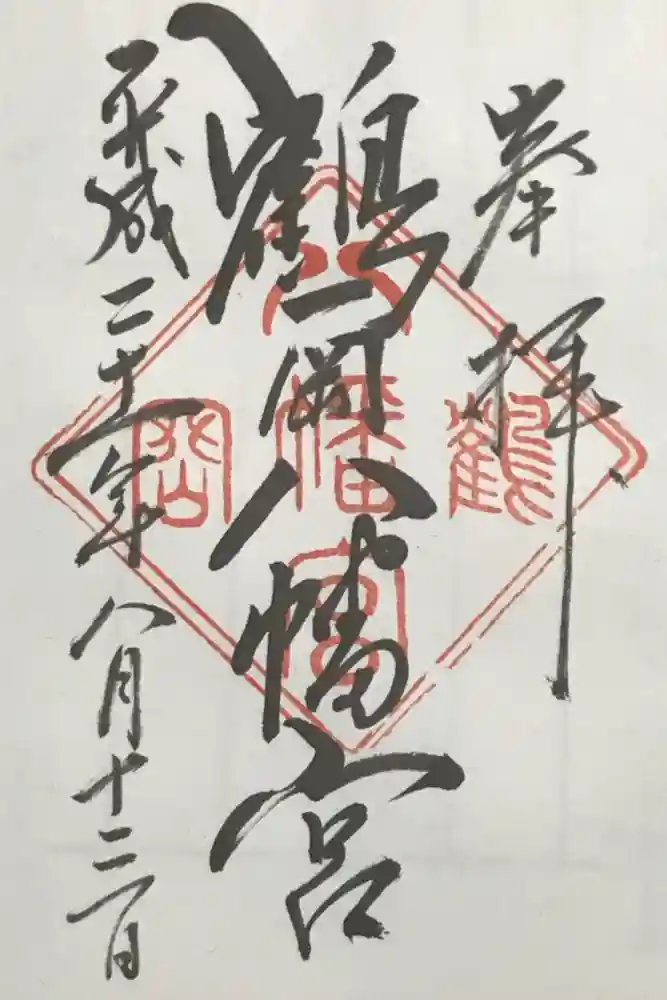 奉拝
鶴岡八幡宮
平成二十一年八月十三日
鶴岡八幡宮